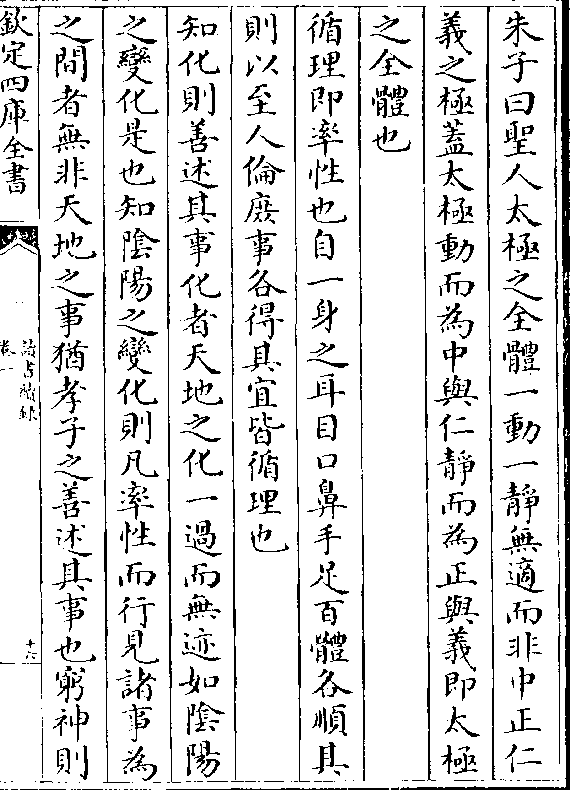 朱子曰聖人太極之全體一動一靜無適而非中正仁
義之極蓋太極動而為中與仁靜而為正與義即太極
之全體也
循理即率性也自一身之耳目口鼻手足百體各順其
則以至人倫庶事各得其宜皆循理也
知化則善述其事化者天地之化一過而無迹如陰陽
之變化是也知陰陽之變化則凡率性而行見諸事為
之間者無非天地之事猶孝子之善述其事也窮神則
欽定四庫全書
讀書續錄
卷一
十六